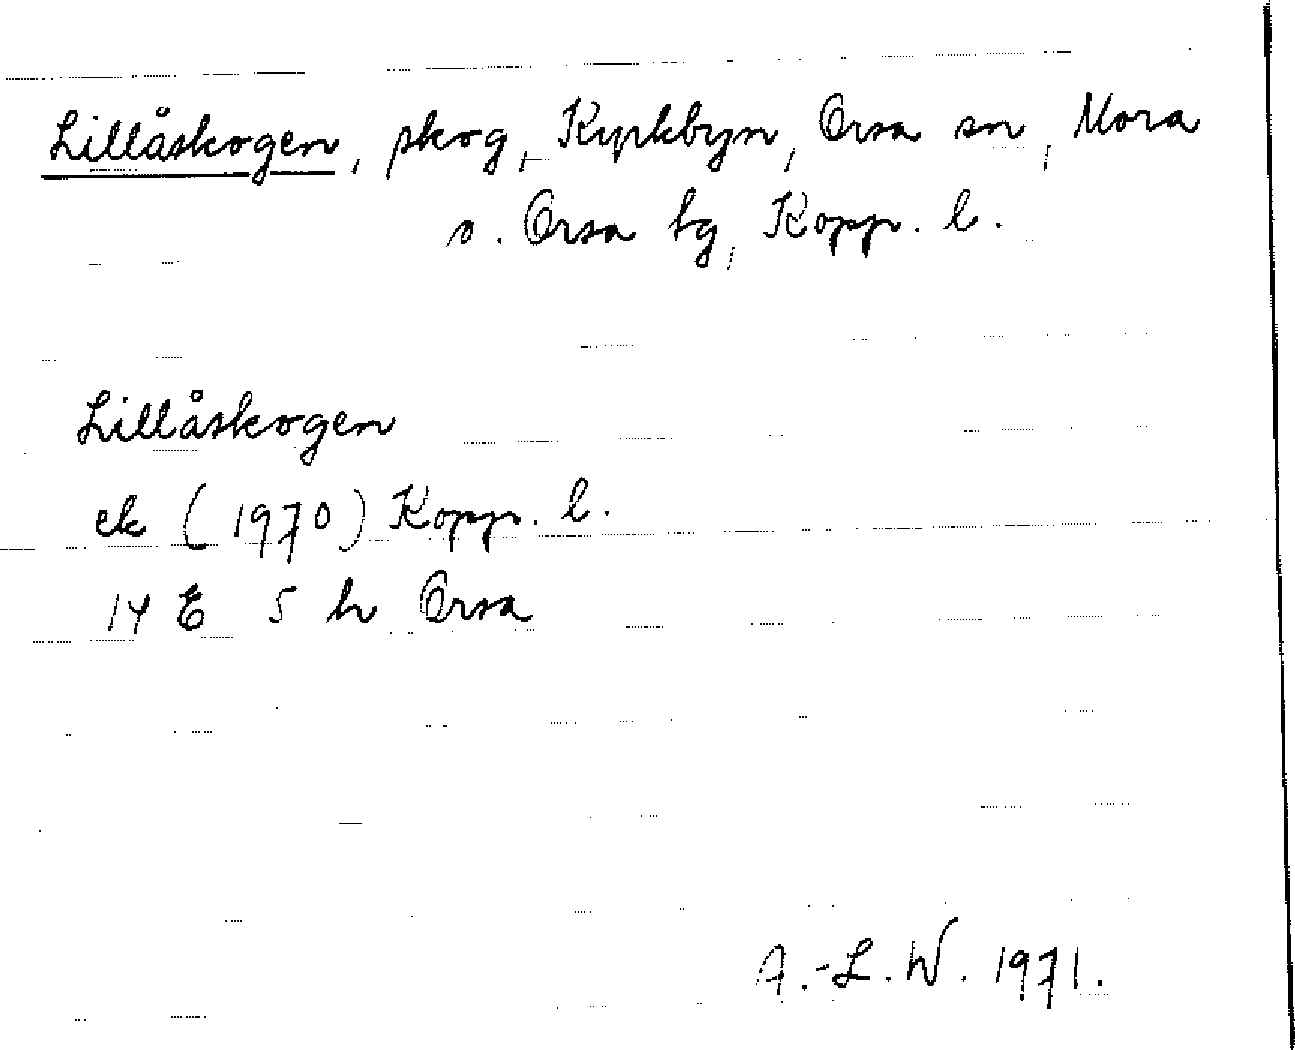 Lillåskogen, skog, Kyrkbyn, Orsa sn, Mora
o. Orsa tg, Kopp. l.
Lillåskogen
ek (1970) Kopp. l.
14 E 5 h Orsa
A.-L. W. 1971.